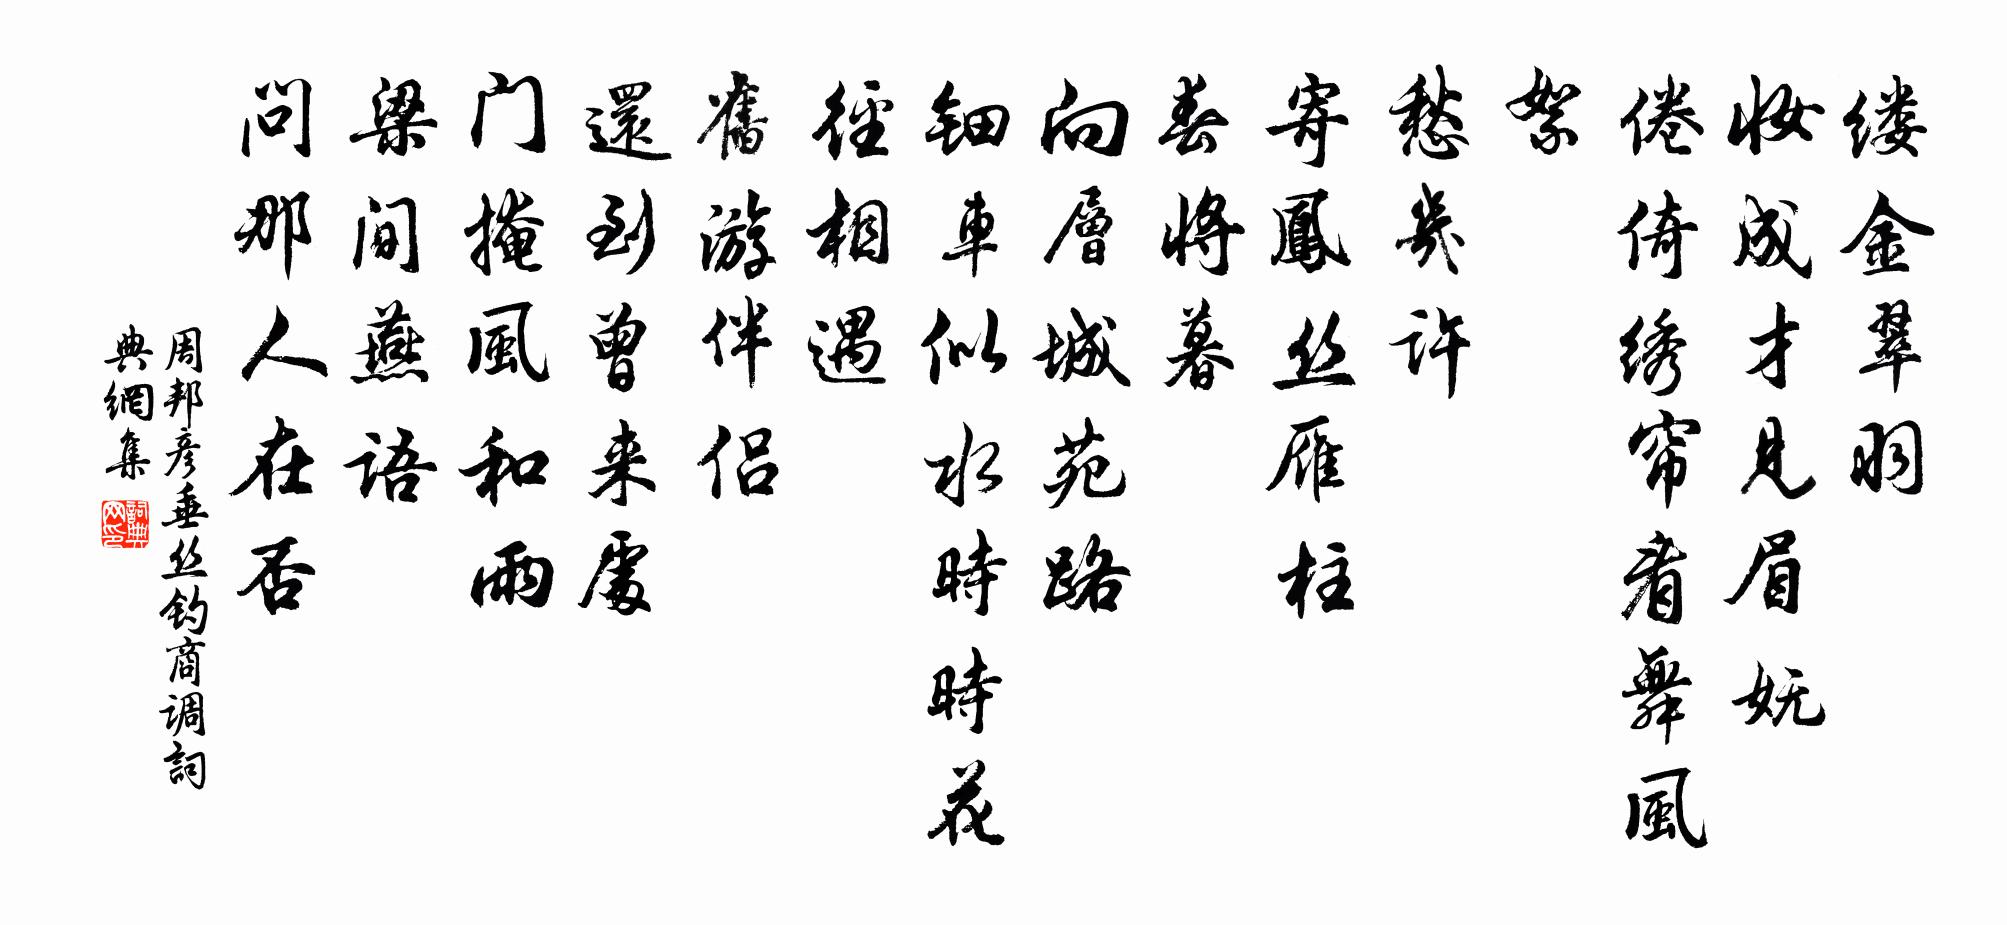 缕金翠羽
妆成才見眉妩
倦倚绣帘看舞風
絮
愁幾許
寄鳳丝雁柱
春將暮
向層城苑路
钿車似水時時花
徑相遇
舊游伴侣
還到曾来處
門掩風和雨
梁間燕語
問那人在否
周邦彦垂丝钓商调詞
典網集
詞典網印